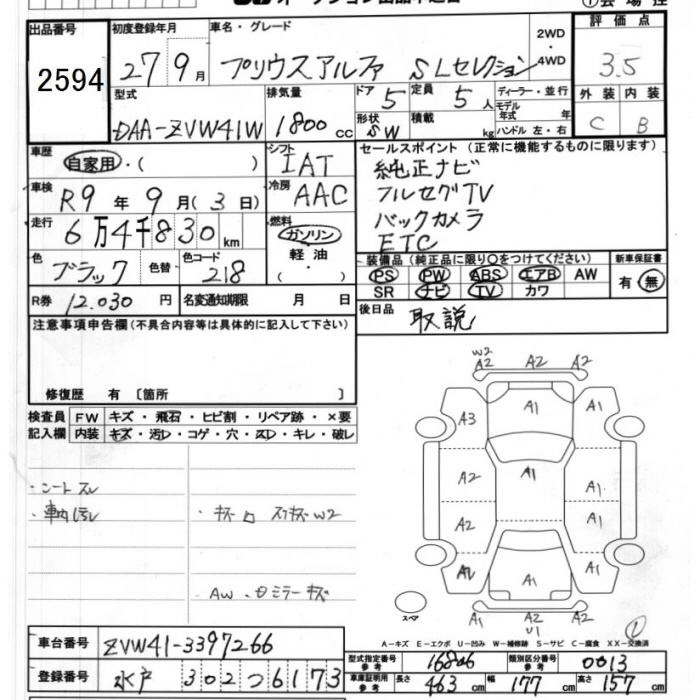 オークション出品申込書
出品番号 初度登録年月 車名・グレード 2WD・4WD 評価点
2594 27 9月 プリウスアルファ SLセレクション 3.5
型式 排気量 ドア 5 定員 5人 ディーラー・並行 外装 内装
DAA-ZVW41W 1800cc 形状 SW 積載 kg モデル年式 年 ハンドル 左・右 C B
車歴 自家用・( ) シフト IAT セールスポイント (正常に機能するものに限ります)
純正ナビ
車検 R9年9月(3日) 冷房 AAC フルセグTV
バックカメラ
走行 6万4千830km 燃料 ガソリン・軽油・( ) ETC
色 ブラック 色替 色コード 218 装備品 (純正品に限り○をつけてください) 新車保証書
PS PW ABS エアB AW 有・無
SR ナビ TV カワ
R券 12.030円 名変通知期限 月 日 後日品 取説
注意事項申告欄(不具合内容等は具体的に記入して下さい)
修復歴 有 〔箇所 〕
検査員記入欄 FW キズ・飛石・ヒビ割・リペア跡・×要
内装 キズ・汚レ・コゲ・穴・スレ・キレ・破レ
シートスレ
車内汚レ
AW・ミラーキズ
W2 A2 A2 A2
A3 A1 A1
A2 A1 A1
A2 A1
A2 A1 A1
スペア A1 A2 U1 A2
A-キズ E-エクボ U-凹み W-補修跡 S-サビ C-腐食 XX-交換済
車台番号 ZVW41-3397266
型式指定番号 参考 類別区分番号 参考 0013
登録番号 水戸 302 つ 6173 車庫証明用 参考 長さ 463cm 幅 177cm 高さ 157cm